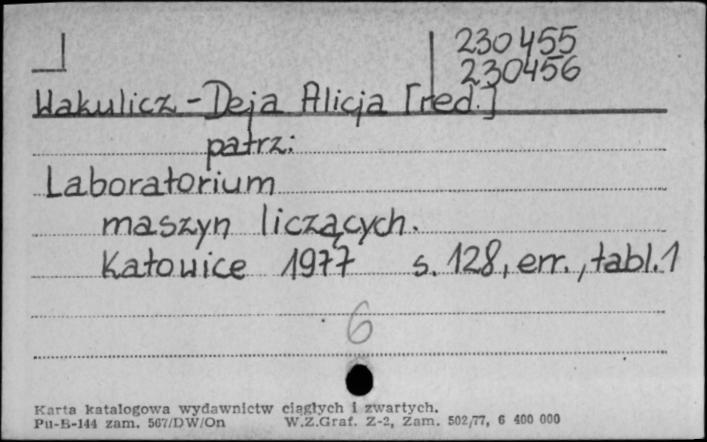 230455
230456
Wakulicz-Deja Alicja [red.]
patrz:
Laboratorium
maszyn liczących.
Katowice 1977 s. 128, err., tabl. 1
6
Karta katalogowa wydawnictw ciągłych i zwartych.
Pu-B-144 zam. 567/DW/On W.Z.Graf. Z-2, Zam. 502/77, 6 400 000